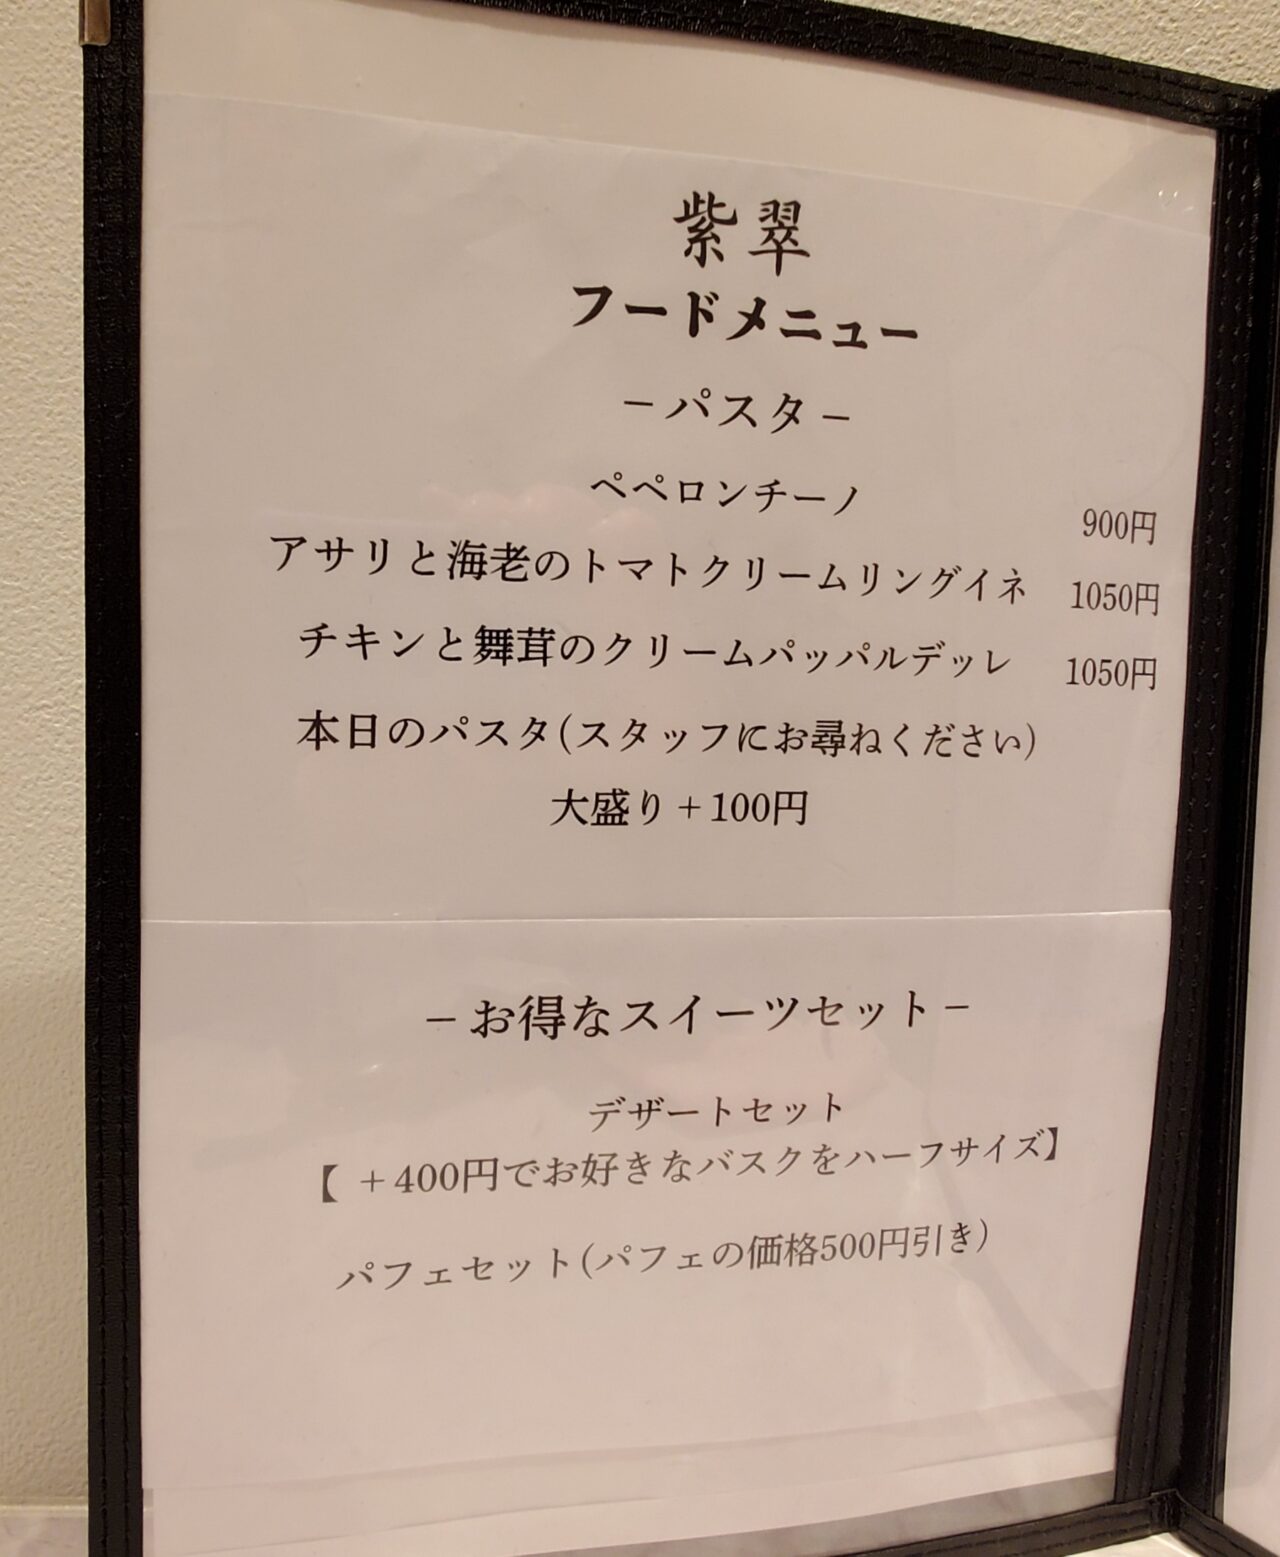 紫翠
フードメニュー
－パスタ－
ペペロンチーノ 900円
アサリと海老のトマトクリームリングイネ 1050円
チキンと舞茸のクリームパッパルデッレ 1050円
本日のパスタ(スタッフにお尋ねください)
大盛り＋100円
－お得なスイーツセット－
デザートセット
【 ＋400円でお好きなバスクをハーフサイズ】
パフェセット(パフェの価格500円引き)